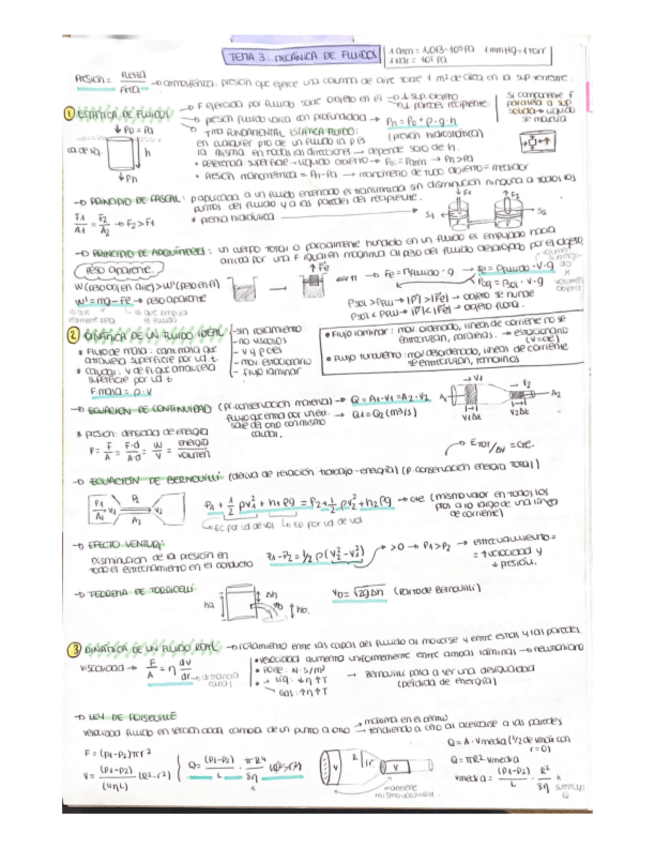 TEMA 3. MECÁNICA DE FLUIDOS
1 atm = 1,013·10⁵ Pa 1 mmHg = 1 torr
1 bar = 10⁵ Pa
Presión = fuerza / área → atmosférica: presión que ejerce una columna de aire sobre 1 m² de área en la sup terrestre.
① ESTÁTICA DE FLUIDOS
→ F ejercida por fluido sobre objeto en él → ⊥ sup. objeto
paredes recipiente.
→ presión fluido varía con profundidad → Ph = Po + ρ·g·h
(presión hidrostática)
Si componente F
paralela a sup
sólida → líquido
se movería
→ Tma FUNDAMENTAL ESTÁTICA FLUIDO:
en cualquier pto de un fluido la p es
la misma en todas las direcciones → depende solo de h.
Po = Pa
h
Ph
• Referencia superficie → líquido abierto → Po = Patm → Ph > Pa
• Presión manométrica = Ph - Pa → manómetro de tubo abierto = medidor
→ PRINCIPIO DE PASCAL: p aplicada a un fluido encerrado es transmitida sin disminución ninguna a todos los
puntos del fluido y a las paredes del recipiente.
F1/A1 = F2/A2 → F2 > F1
• prensa hidráulica
F1 F2
S1 S2
→ PRINCIPIO DE ARQUÍMEDES: un cuerpo total o parcialmente hundido en un fluido es empujado hacia
arriba por una F igual en magnitud al peso del fluido desplazado por el objeto
Peso aparente.
W (peso obj en aire) > W' (peso en fl)
W' = mg - Fe → peso aparente
Fe
→ Fe = m fluido · g → Fe = ρ fluido · V · g
ρsol > ρflu → |P| > |Fe| → objeto se hunde
ρsol < ρflu → |P| < |Fe| → objeto flota.
② DINÁMICA DE UN FLUIDO IDEAL
- sin rozamiento
- no viscosos
- v y ρ ctes
- mov estacionario
- flujo laminar
• Flujo laminar: mov. ordenado, líneas de corriente no se
entrecruzan, paralelas. → estacionario
(v = cte)
• Flujo turbulento: mov desordenado, líneas de corriente
se entrecruzan, remolinos
* Flujo de masa: cant. masa que
atraviesa superficie por ud t.
* Caudal: V de fl que atraviesa
superficie por ud t
F masa = ρ · V
→ ECUACIÓN DE CONTINUIDAD (pr. conservación materia) → Q = A1·V1 = A2·V2
flujo que entra por un extr.
sale del otro con mismo
caudal.
→ Q1 = Q2 (m³/s)
A1 V1 V2 A2
V1Δt V2Δt
* presión: densidad de energía
P = F/A = F·d/A·d = W/V = energía/volumen
ETOT/ΔV = cte.
→ ECUACIÓN DE BERNOUILLI (deriva de relación trabajo-energía) (p. conservación energía total)
F1 A1 V1 P2 A2 V2
P1 + 1/2 ρv1² + h1ρg = P2 + 1/2 ρv2² + h2ρg → cte (mismo valor en todos los
ptos a lo largo de una línea
de corriente)
EC por ud de vol Ep por ud de vol
→ EFECTO VENTURI:
Disminución de la presión en
todo el estrechamiento en el conducto
P1 - P2 = 1/2 ρ(v2² - v1²)
> 0 → P1 > P2 → estrechamiento =
= ↑ velocidad y
↓ presión.
→ TEOREMA DE TORRICELLI:
ha Δh hb
vb = √2gΔh (parto de Bernouilli)
③ DINÁMICA DE UN FLUIDO REAL → rozamiento entre las capas del fluido al moverse y entre estas y las paredes.
Viscosidad → F/A = η dv/dr
distancia
capas
• velocidad aumenta uniformemente entre ambas láminas → newtoniano
• POISE: N·s/m²
• → líq: ↓η ↑T
gas: ↑η ↑T
→ Bernouilli pasa a ser una desigualdad
(pérdida de energía)
→ LEY DE POISEUILLE
velocidad fluido en sección cada cambia de un punto a otro → máxima en el centro
→ tendiendo a cero al acercarse a las paredes
F = (P1 - P2)πr²
V = (P1 - P2)/(4ηL) (R² - r²)
Q = (P1 - P2)/L · πR⁴/8η
V R r V
mantiene
mismo volumen.
Q = A · Vmedia (1/2 de vmáx con
r = 0)
Q = πR² Vmedia
Vmedia = (P1 - P2)/L · R²/8η